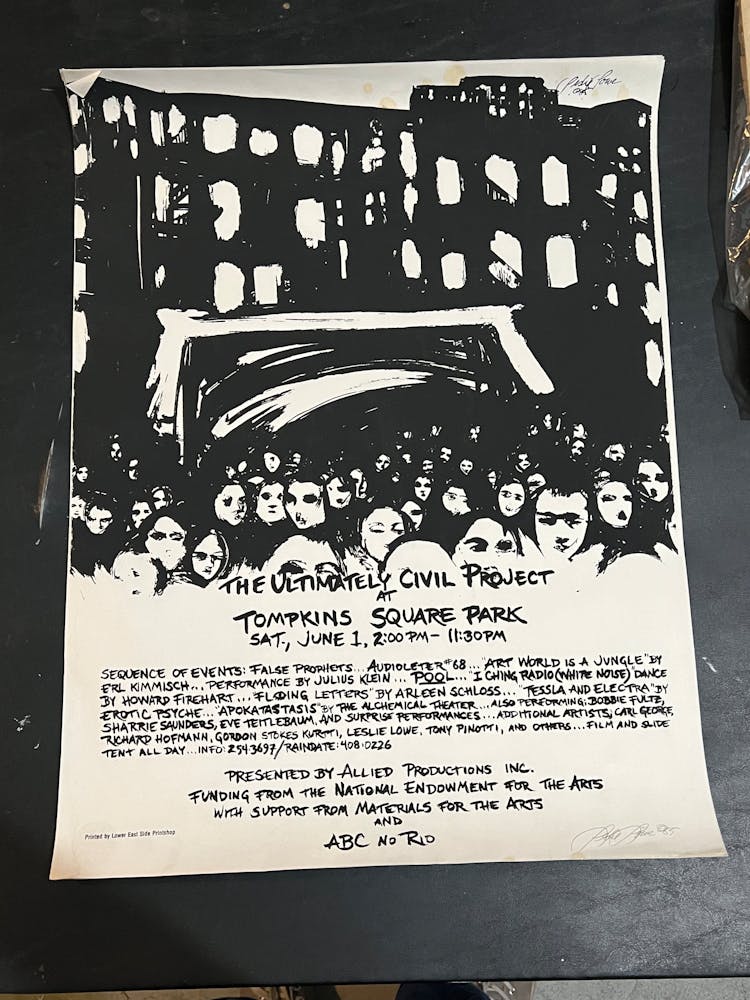 THE ULTIMATELY CIVIL PROJECT
AT
TOMPKINS SQUARE PARK
SAT., JUNE 1, 2:00 PM - 11:30 PM
SEQUENCE OF EVENTS: FALSE PROPHETS... AUDIOLETER #68... "ART WORLD IS A JUNGLE" BY
ERL KIMMISCH... PERFORMANCE BY JULIUS KLEIN... POOL... "I CHING RADIO (WHITE NOISE)" DANCE
BY HOWARD FIREHART... FLODING LETTERS" BY ARLEEN SCHLOSS... "TESSLA AND ELECTRA" BY
EROTIC PSYCHE... "APOKATASTASIS" BY THE ALCHEMICAL THEATER... ALSO PERFORMING: BOBBIE FULTZ,
SHARRIE SAUNDERS, EVE TEITLEBAUM, AND SURPRISE PERFORMANCES... ADDITIONAL ARTISTS; CARL GEORGE,
RICHARD HOFMANN, GORDON STOKES KURTTI, LESLIE LOWE, TONY PINOTTI, AND OTHERS... FILM AND SLIDE
TENT ALL DAY... INFO: 254-3697 / RAINDATE: 408-0226
PRESENTED BY ALLIED PRODUCTIONS INC.
FUNDING FROM THE NATIONAL ENDOWMENT FOR THE ARTS
WITH SUPPORT FROM MATERIALS FOR THE ARTS
AND
ABC NO RIO
Printed by Lower East Side Printshop